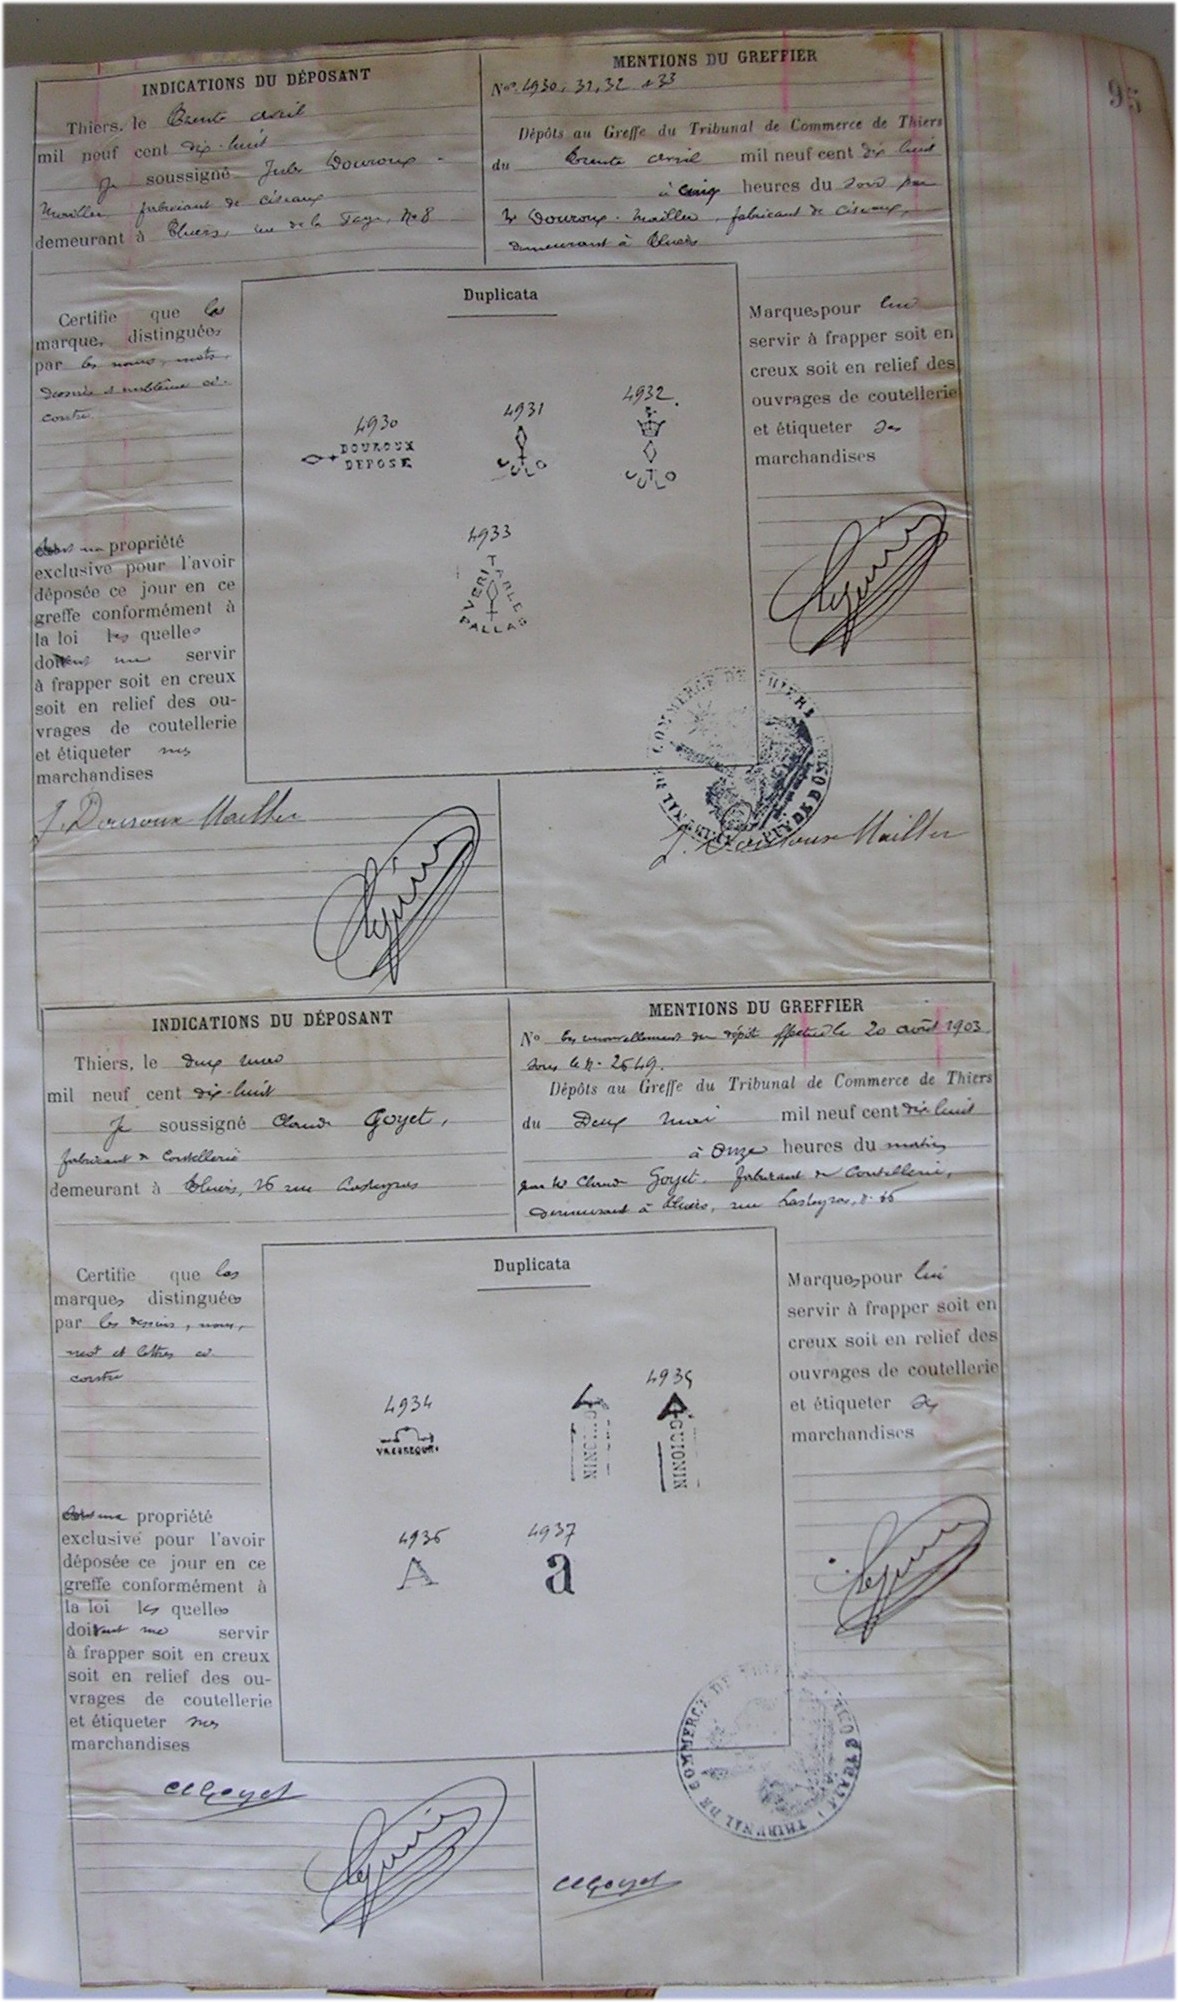 95
INDICATIONS DU DÉPOSANT
Thiers, le trente avril
mil neuf cent dix-huit
Je soussigné Jules Douroux-
Mailler fabricant de ciseaux
demeurant à Thiers, rue de la No 8
MENTIONS DU GREFFIER
Nos 4930, 31, 32 & 33
Dépôts au Greffe du Tribunal de Commerce de Thiers
du trente avril mil neuf cent dix huit
à cinq heures du soir par
Mr Douroux-Mailler, fabricant de ciseaux,
demeurant à Thiers
Certifie que les
marques distinguées
par les noms, mots,
dessins & emblème ci-
contre
propriété
exclusive pour l'avoir
déposée ce jour en ce
greffe conformément à
la loi les quelles
doivent me servir
à frapper soit en creux
soit en relief des ou-
vrages de coutellerie
et étiqueter mes
marchandises
Duplicata
4930
DOUROUX
DEPOSE
4931
CUTLO
4932
CUTLO
4933
VERITABLE
PALLAS
Marques pour lui
servir à frapper soit en
creux soit en relief des
ouvrages de coutellerie
et étiqueter ses
marchandises
TRIBUNAL DE COMMERCE DE THIERS
PUY DE DÔME
J. Douroux Mailler
J. Douroux Mailler
INDICATIONS DU DÉPOSANT
Thiers, le deux mai
mil neuf cent dix-huit
Je soussigné Claude Goyet,
fabricant de Coutellerie
demeurant à Thiers, 26 rue Lasteyras
MENTIONS DU GREFFIER
No En renouvellement du dépôt effectué le 20 août 1903
sous le no 2649.
Dépôts au Greffe du Tribunal de Commerce de Thiers
du Deux mai mil neuf cent dix huit
à Onze heures du matin
par Mr Claude Goyet, fabricant de Coutellerie,
demeurant à Thiers, rue Lasteyras,
Certifie que les
marques distinguées
par les dessins, noms,
mot et lettres ci-
contre
propriété
exclusive pour l'avoir
déposée ce jour en ce
greffe conformément à
la loi les quelles
doivent me servir
à frapper soit en creux
soit en relief des ou-
vrages de coutellerie
et étiqueter mes
marchandises
Duplicata
4934
4935
GUIONIN
GUIONIN
4936
A
4937
a
Marques pour lui
servir à frapper soit en
creux soit en relief des
ouvrages de coutellerie
et étiqueter ses
marchandises
TRIBUNAL DE COMMERCE DE THIERS
Cl Goyet
Cl Goyet